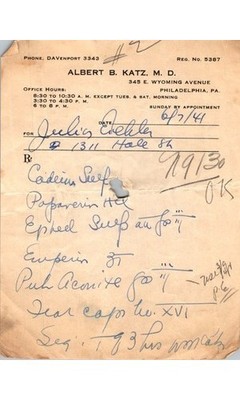 PHONE, DAVENPORT 3343
REG. NO. 5387
#2
ALBERT B. KATZ, M. D.
345 E. WYOMING AVENUE
OFFICE HOURS:
PHILADELPHIA, PA.
8:30 TO 10:30 A. M. EXCEPT TUES. & SAT. MORNING
3:30 TO 4:30 P. M.
6 TO 8 P. M.
SUNDAY BY APPOINTMENT
DATE 6/7/41
FOR Julius
1311 Hale St
R 79130
OK
Codeine Sulf
Papaverin Hcl
Ephed Sulf aa
Empirin
Pulv Aconite
Caps No. XVI
Sig. 1 q 3 hrs